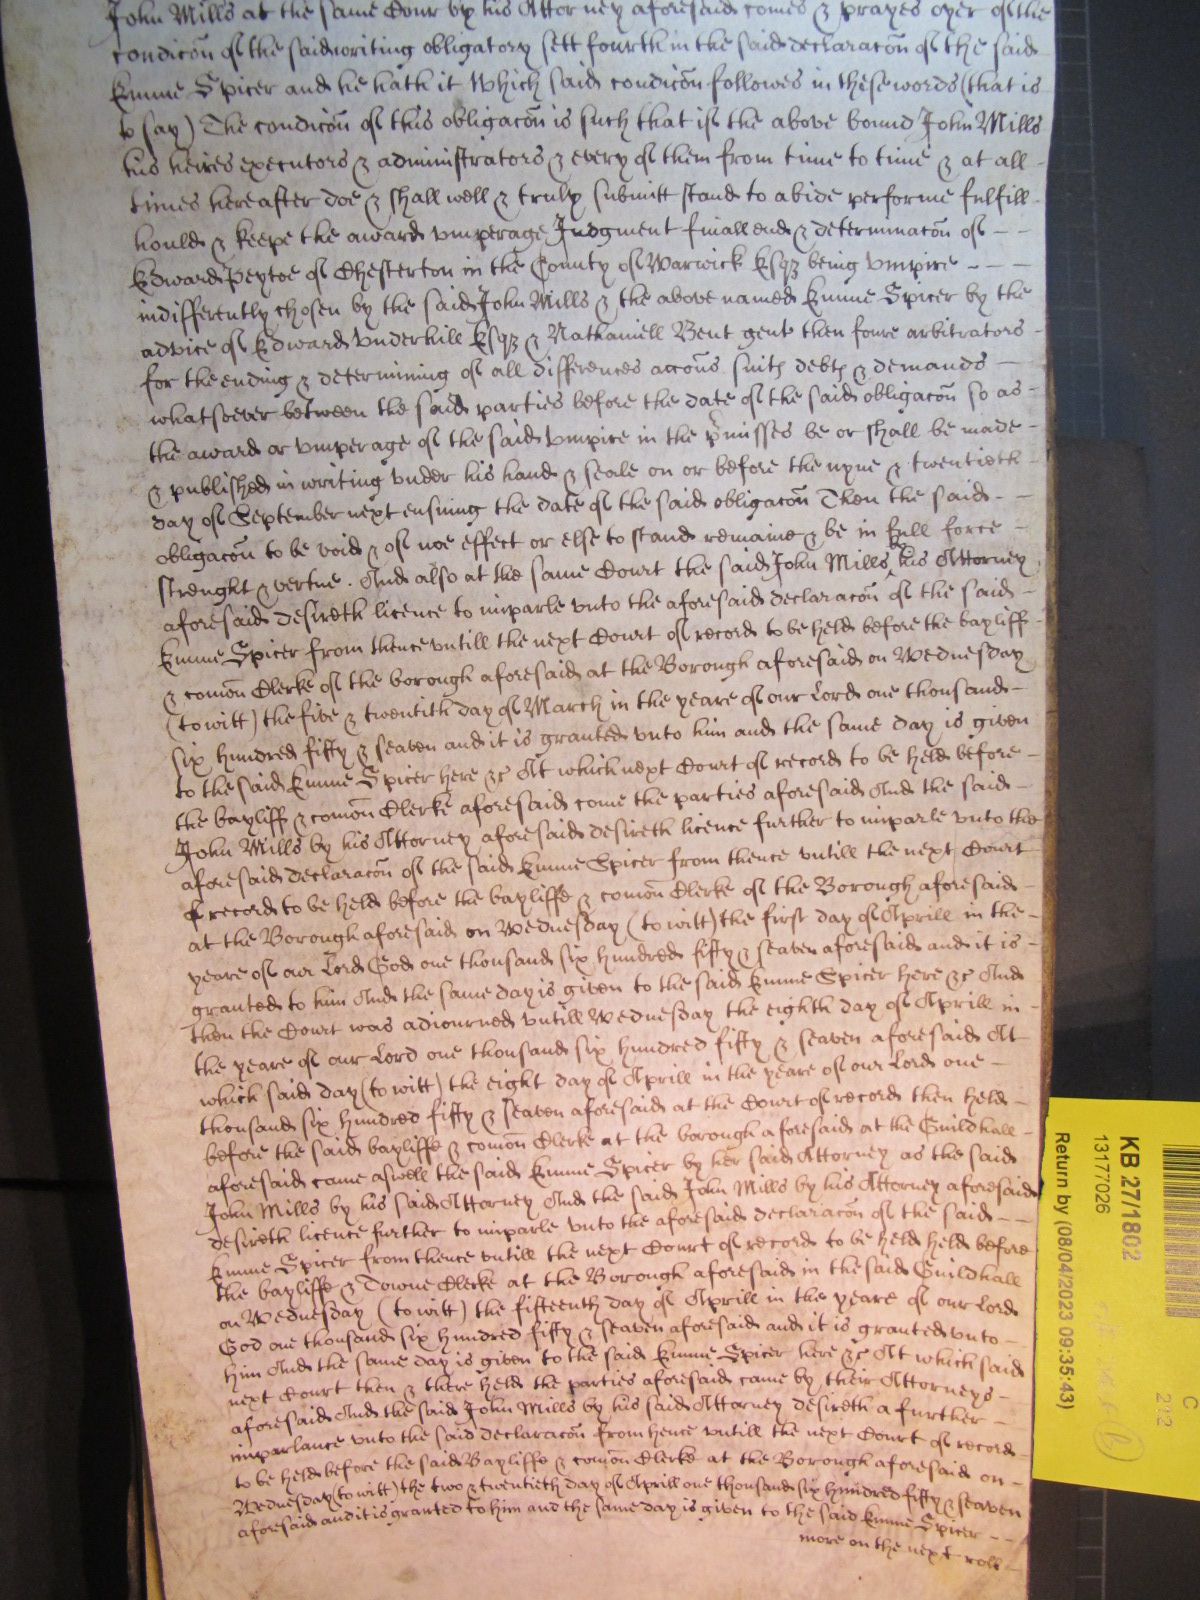 John Mills at the same Cour by his Attorney aforesaid comes & prayes oyer of the
condicōn of the said writing obligatory sett fourth in the said declaracōn of the said
Emme Spicer and he hath it Which said condicōn followes in these words (that is
to say) The condicōn of this obligacōn is such that if the above bound John Mills
his heires executors & administrators & every of them from time to time & at all -
times hereafter doe & shall well & truly submitt stand to abide performe fulfill -
hould & keepe the award vmperage Judgment finall end & determinacōn of - -
Edward Peytoe of Chesterton in the County of Warwick Esqz being vmpire - - -
indifferently chosen by the said John Mills & the above named Emme Spicer by the
advice of Edward Vnderhill Esqz & Nathaniell Bent gent then foure arbitrators -
for the ending & determining of all differences accōns suits debts & demands -
whatsoever betweene the said parties before the date of the said obligacōn so as -
the award or vmperage of the said vmpire in the pmisses be or shall be made -
& published in writing vnder his hand & seale on or before the nyne & twentieth -
day of September next ensuing the date of the said obligacōn Then the said - -
obligacōn to be void & of noe effect or else to stand remaine & be in full force -
strenght & vertue . And also at the same Court the said John Mills by his Attorney
aforesaid desireth licence to imparle vnto the aforesaid declaracōn of the said -
Emme Spicer from thence vntill the next Court of record to be held before the bayliff -
& comōn Clerke of the borough aforesaid at the Borough aforesaid on Wednesday
(to witt) the five & twentith day of March in the yeare of our Lord one thousand -
six hundred fifty & seaven and it is granted vnto him and the same day is given
to the said Emme Spicer here &c At which next Court of record to be held before -
the bayliff & comōn Clerke aforesaid come the parties aforesaid And the said -
John Mills by his Attorney aforesaid desireth licence further to imparle vnto the
aforesaid declaracōn of the said Emme Spicer from thence vntill the next Court
of record to be held before the bayliffe & comōn Clerke of the Borough aforesaid -
at the Borough aforesaid on Wednesday (to witt) the first day of Aprill in the -
yeare of our Lord God one thousand six hundred fifty & seaven aforesaid and it is -
granted to him And the same day is given to the said Emme Spicer here &c And
then the Court was adiourned vntill Wednesday the eighth day of Aprill in -
the yeare of our Lord one thousand six hundred fifty & seaven aforesaid At
which said day (to witt) the eight day of Aprill in the yeare of our Lord one -
thousand six hundred fifty & seaven aforesaid at the Court of record then held -
before the said bayliffe & comōn Clerke at the borough aforesaid at the Guildhall -
aforesaid came aswell the said Emme Spicer by her said Attorney as the said
John Mills by his said Attorney And the said John Mills by his Attorney aforesaid
desireth licence further to imparle vnto the aforesaid declaracōn of the said - -
Emme Spicer from thence vntill the next Court of record to be held held before
the bayliffe & Towne Clerke at the Borough aforesaid in the said Guildhall
on Wednesday (to witt) the fifteenth day of Aprill in the yeare of our Lord
God one thousand six hundred fifty & seaven aforesaid and it is granted vnto -
him And the same day is given to the said Emme Spicer here &c At which said
next Court then & there held the parties aforesaid came by their Attorneys -
aforesaid And the said John Mills by his said Attorney desireth a further -
imparlance vnto the said declaracōn from hence vntill the next Court of record -
to be held before the said Bayliffe & comōn Clerke at the Borough aforesaid on -
Wednesday (to witt) the two & twentieth day of Aprill one thousand six hundred fifty & seaven
aforesaid and it is granted to him and the same day is given to the said Emme Spicer - -
more on the next roll -
KB 27/1802
13177026
Return by (08/04/2023 09:35:43)
C
212